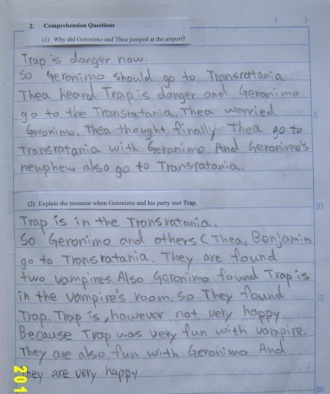 2. Comprehension Questions
(1) Why did Geronimo and Thea jumped at the airport?
Trap is danger now.
So Geronimo should go to Transratania
Thea heard Trap is danger and Geronimo
go to the Transratania. Thea worried
Geronimo. Thea thought, finally Thea go to
Transratania with Geronimo. And Geronimo's
newphew also go to Transratania.
5
(2) Explain the moment when Geronimo and his party met Trap.
10
Trap is in the Transratania.
So Geronimo and others (Thea, Benjamin
go to Transratania. They are found
two vampires. Also Geronimo found Trap is
in the vampire's room. So They found
15
Trap. Trap is, however not very happy.
Because Trap was very fun with vampire.
They are also fun with Geronimo. And
they are very happy
20
201